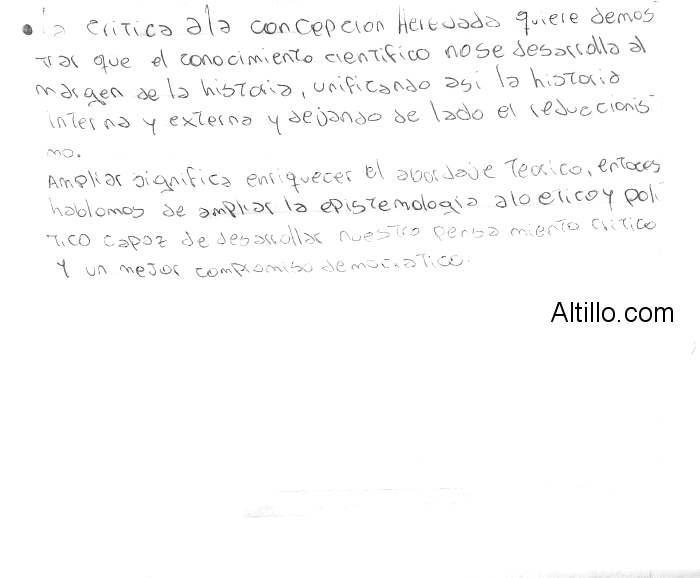 • la critica a la concepcion Heredada quiere demos
trar que el conocimiento cientifico no se desarrolla al
margen de la historia, unificando asi la historia
interna y externa y dejando de lado el reduccionis
mo.
Ampliar significa enriquecer el abordaje teorico, entoces
hablamos de ampliar la epistemologia a lo etico y poli
tico capaz de desarrollar nuestro pensamiento critico
y un mejor compromiso democratico.
Altillo.com